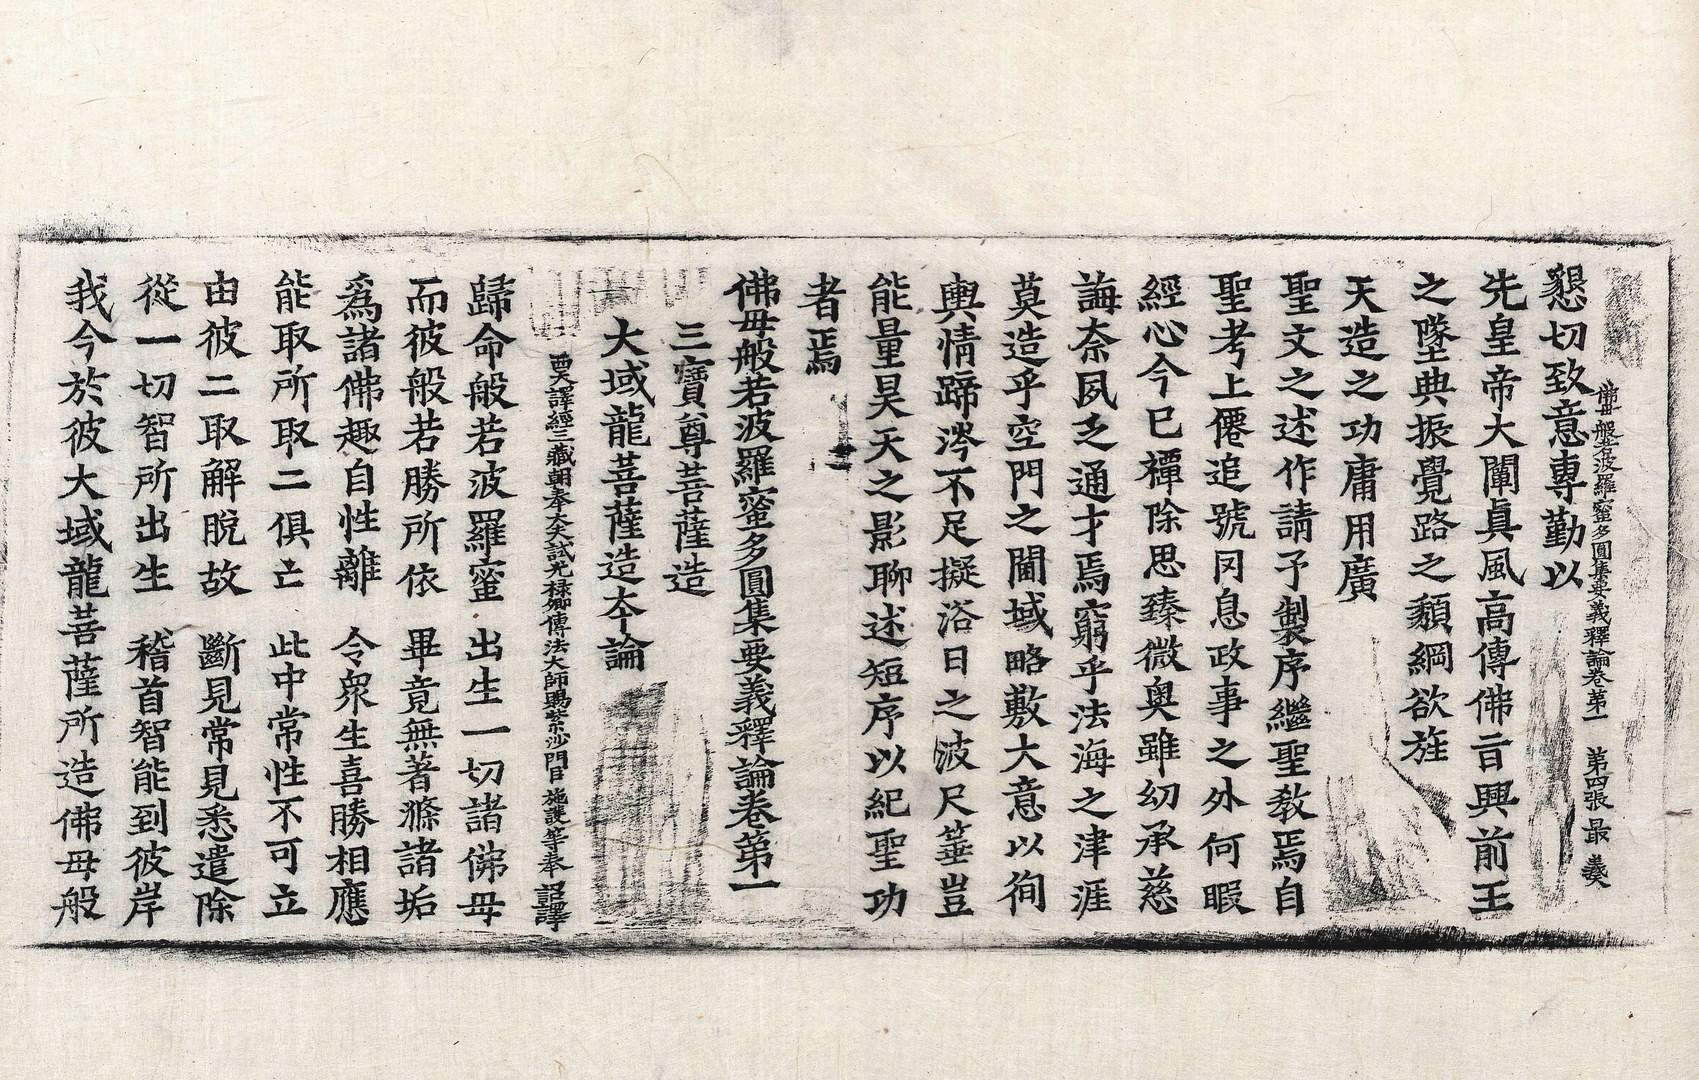 佛母般若波羅蜜多圓集要義釋論卷第一 第四張 最
懇切致意專勤以
先皇帝大闡眞風高傳佛旨興前王
之墜典振覺路之頹綱欲旌
天造之功庸用廣
聖文之述作請予製序繼聖教焉自
聖考上僊追號罔息政事之外何暇
經心今已禫除思臻微奧雖幼承慈
誨奈夙乏通才焉窮乎法海之津涯
莫造乎空門之閫域略敷大意以徇
輿情蹄涔不足擬浴日之波尺箠豈
能量昊天之影聊述短序以紀聖功
者焉
佛母般若波羅蜜多圓集要義釋論卷第一
三寶尊菩薩造
大域龍菩薩造本論
西天譯經三藏朝奉大夫試光祿卿傳法大師賜紫沙門臣施護等奉 詔譯
歸命般若波羅蜜 出生一切諸佛母
而彼般若勝所依 畢竟無著滌諸垢
爲諸佛趣自性離 令衆生喜勝相應
能取所取二俱亡 此中常性不可立
由彼二取解脫故 斷見常見悉遣除
從一切智所出生 稽首智能到彼岸
我今於彼大域龍菩薩所造佛母般